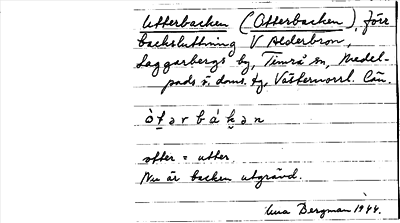 Utterbacken (Otterbacken), förr
backsluttning V Alderbron,
Laggarbergs by, Timrå sn, Medel-
pads v. doms. tg, Västernorrl. län.
ò t ə r b á k ə n
otter = utter
Nu är backen utgrävd.
Bergman 1944.